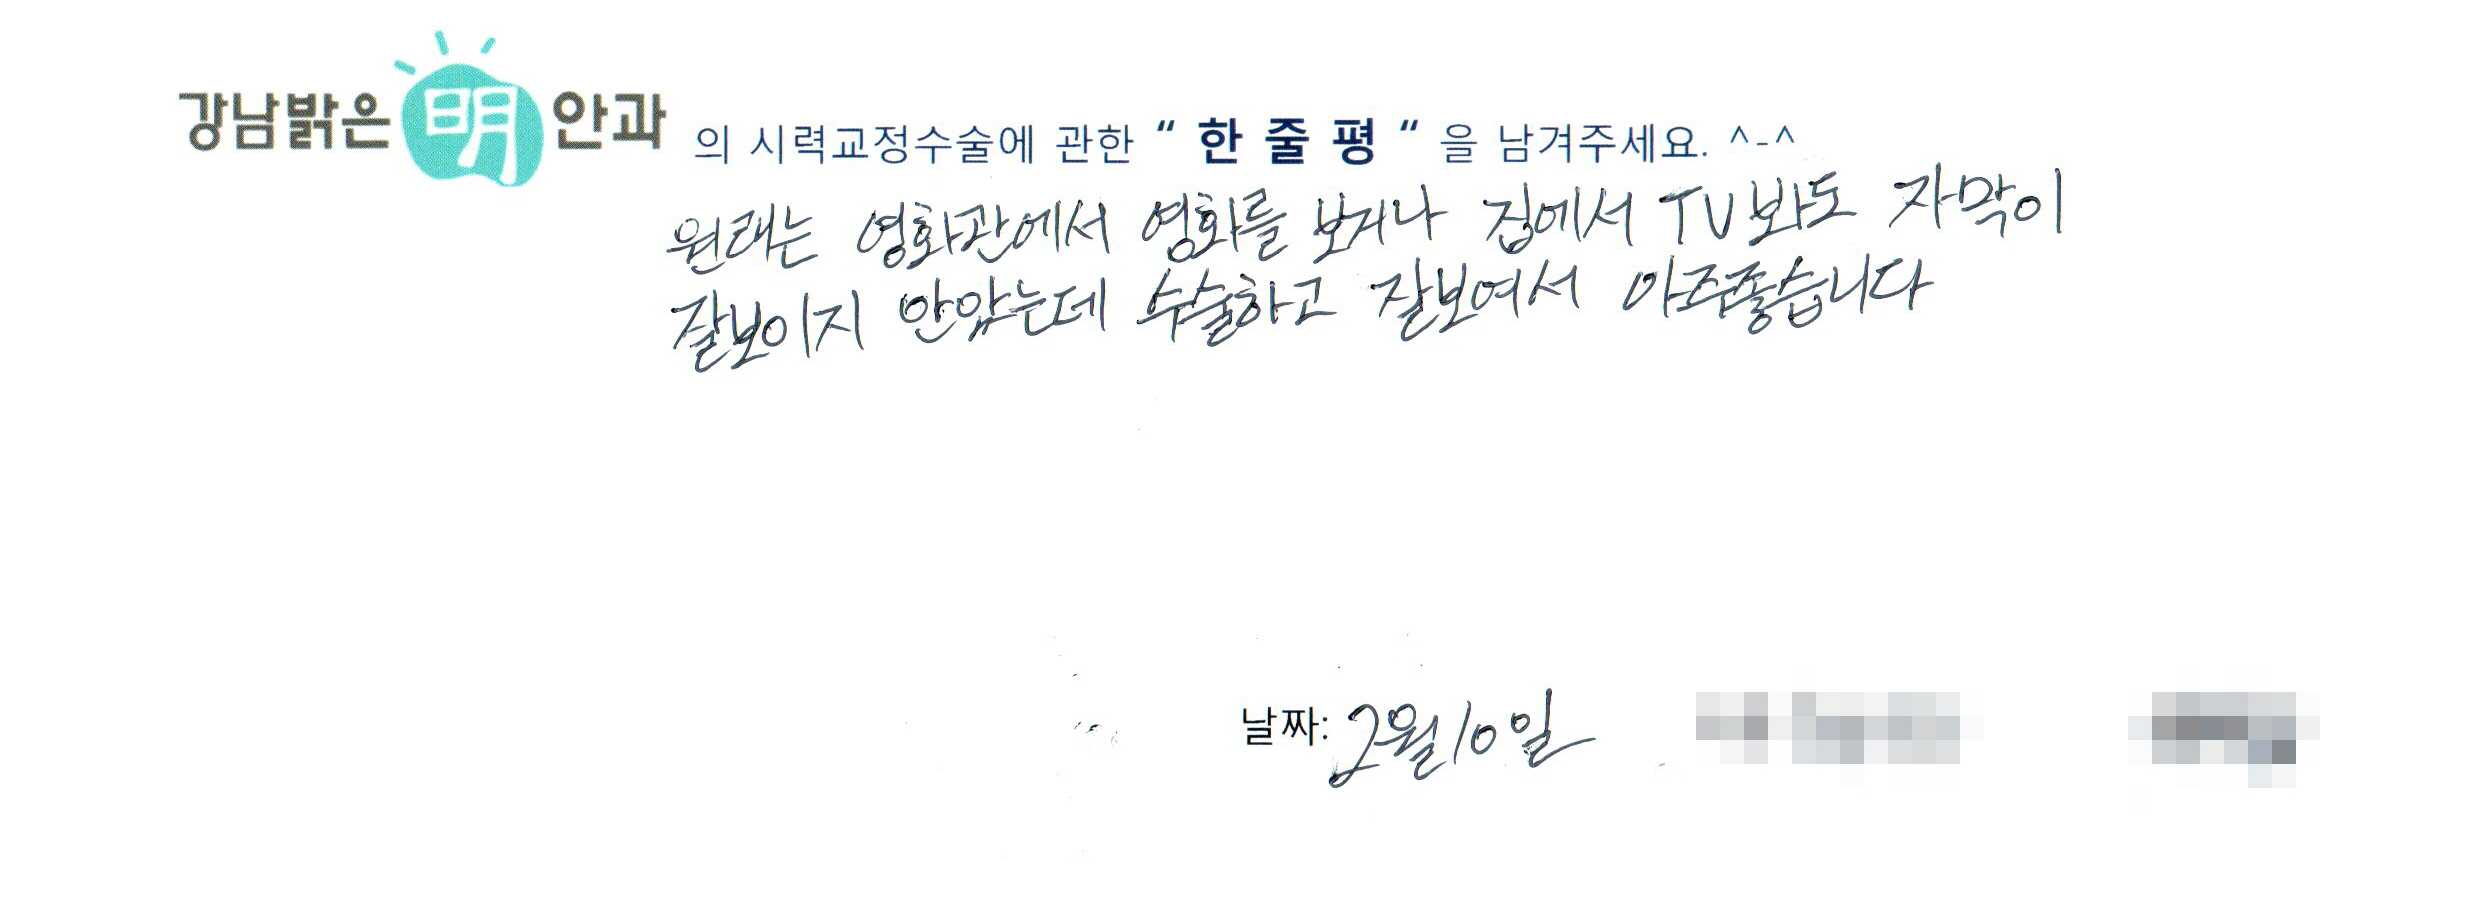 강남밝은 明 안과 의 시력교정수술에 관한 “ 한 줄 평 “ 을 남겨주세요. ^-^
원래는 영화관에서 영화를 보거나 집에서 TV봐도 자막이
잘보이지 안았는데 수술하고 잘보여서 아주좋습니다
날짜: 2월10일